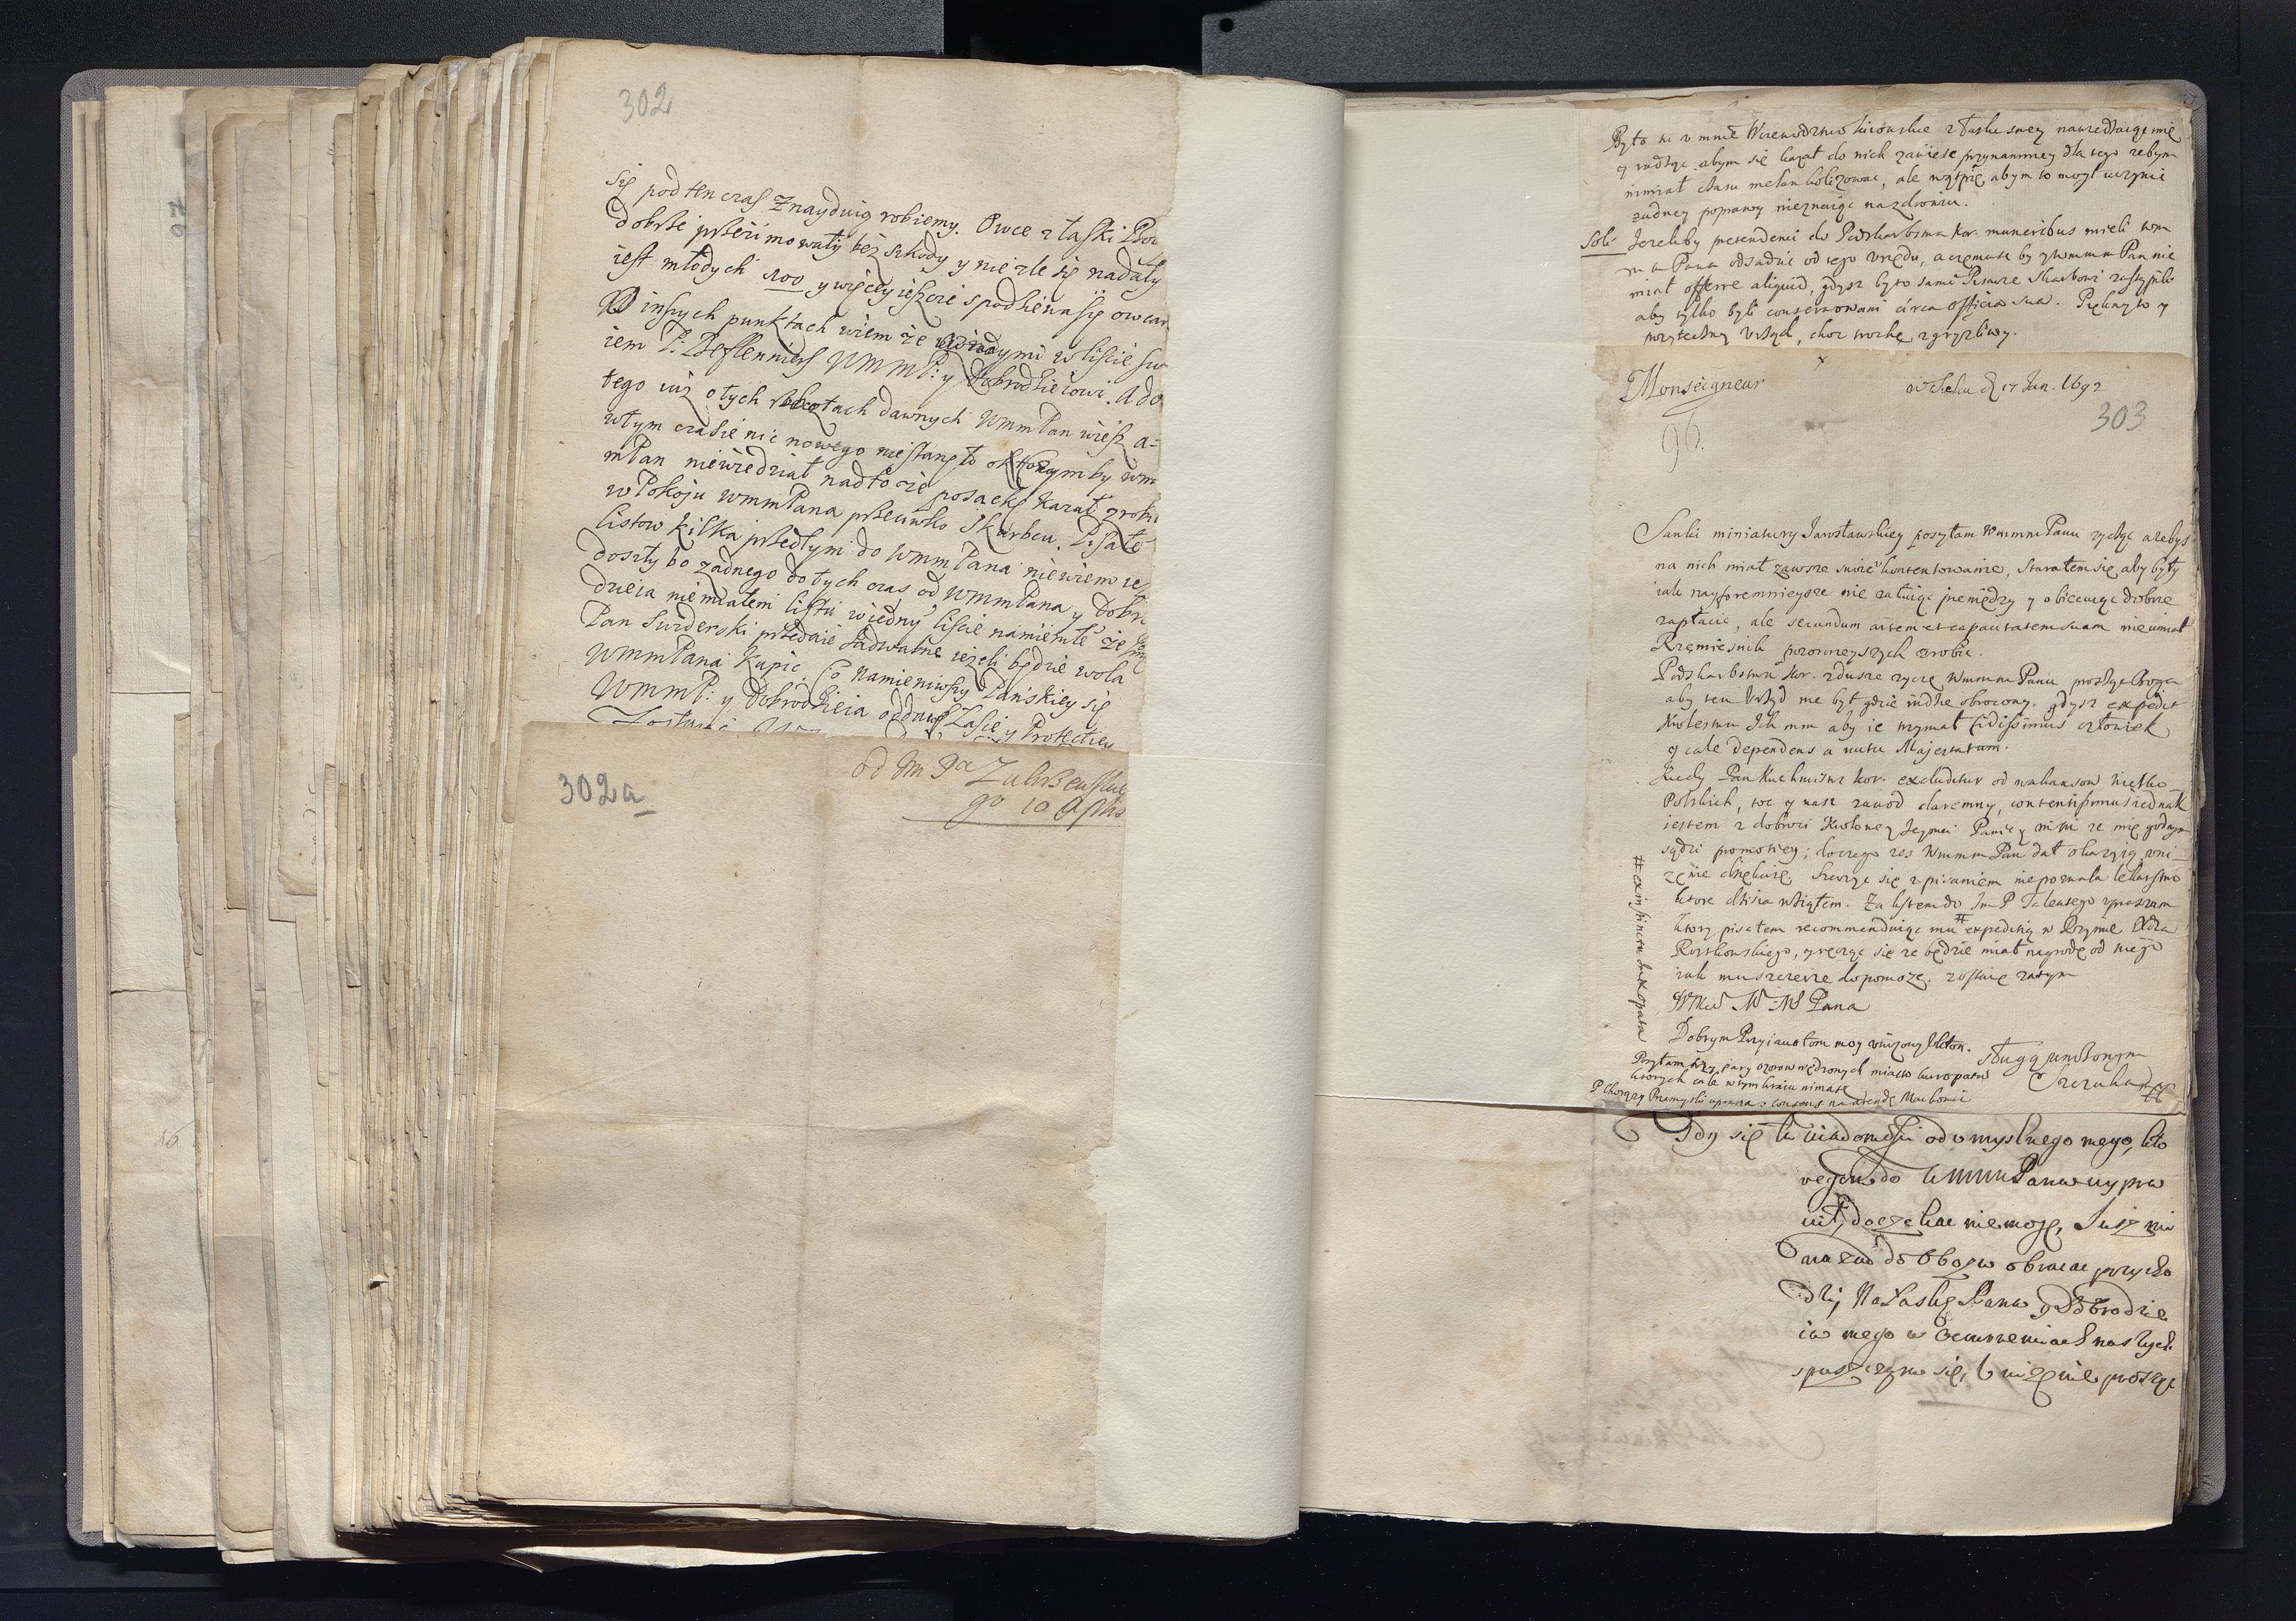 302
się pod ten czas znayduią robiemy. Owce z łaski
dobrze przezimowały bez szkody y nie zle się nadały
iest młodych 100 y więcey ieszcze spodziewa się owczar
O inszych punktach wiem że wiadymi w liście
iem P. Deflennieres WMMP: y Dobrodzieiowi. Ado
tego iuz o tych robotach dawnych WmmPan wiesz a-
wtym czasie nic nowego niestanęło oktorymby wm
mPan niewiedział nadto że posackę kazał zrobi
w Pokoju wmmPana przeciwko Skarbcu. Pisałe
listow kilka przedtym do WmmPana niewiem ie
doszły bo zadnego do tych czas od WmmPana y Dobr
dzieia niemiałem listu wiedny liscie namieniłe że
Pan Swiderski przedaie Sadwalne iezeli będzie wola
WmmPana kupic. Co namieniwszy Pańskiey się
WmmP: y Dobrodzieia oddawszy Łasce y Protectiey
302a
od Im Pa
go 10 Apris
Było tu v mnie Woiewodztwo kiiowskie z Łaski swey nawiedzaiąc mię
y radząc abym się kazał do nich zawiesc przynamniey dla tego zebym
nimiał czasu melankolizowac, ale wątpię abym to mogł uczynic
zadney poprawy nieznaiąc na zdrowiu.
Soli Jezeliby pretendenci do Podskarbstwa kor. muneribus mieli wm
m m Pana odsadzic od tego vrzędu, a czemusz by y wmmm Pan nie
miał offerre aliquid, gdysz by to sami Pisarze Skarbowi zastąpili
aby tylko byli conservowani circa officia sua. Piękny to y
pozyteczny Vrząd, choc trochę zgryzliwy.
Monseigneur
w Seku d 17 Jan. 1692
303
96.
Sanki miniatury Jarosławskiey posyłam WmmmPanu zycząc azebys
na nich miał zawsze swoie kontentowanie, Starałem się aby były
iak nayforemnieysze nie załuiąc pieniędzy y obiecuiąc dobrze
zapłacic, ale secundum artem et capacitatem suam nieumiał
Rzemiesnik pozornieyszych zrobic.
Podskarbstwa kor. zdusze zyczę WmmmPanu prosząc Boga
aby ten Vrząd nie był gdzie indzie obrocony. gdysz expedit
Krolestwu Ich mm aby ie trzymał fidissimus człowiek
y cale dependens a nutu Majestatum.
Kiedy Pan Kuchmistrz kor. excluditur od wakansow
Polskich, toc y nasz zawod daremny, contentissimus iednak
iestem z dobroci Krolowey Jeymci Paniey mey ze mię godnym
sądzi promotiey; do czego zes WmmmPan dał okazyią vni-
zenie dziękuię. Szerzyc się z pisaniem niepozwala lekarstwo
ktore dzisia wziąłem. Za listem do Im P Talentego vpraszam
ktory pisałem recommenduiąc mu # expeditią w Rzymie Xdza
Rostkowskiego, y ręczę się ze będzie miał nagrodę od niego
iak mu szczerze dopomoze. zostaię zatym
Wmm M M Pana
# coin
Dobrym Przyiaciołom moy vnizony Ukłon.
sługą unizonym
Szczuka
Posyłam trzy pary ozorow wędzonych miasto kuropatw
ktorych cale w tym kraiu nimasz
P Chorąży Przemyski uprasza o consens na arendę
Gdy się tu wiadomosci od vmyslnego mego, kto
regom do WmmmPana wypra
wił, doczekac niemogę, Jusz mi
nazad do Obozu obracac przycho
dzi, Na Łaskę Pana y Dobrodzie
ia mego w Ocurrenciach naszych
spuszczam się, Unizenie prosząc